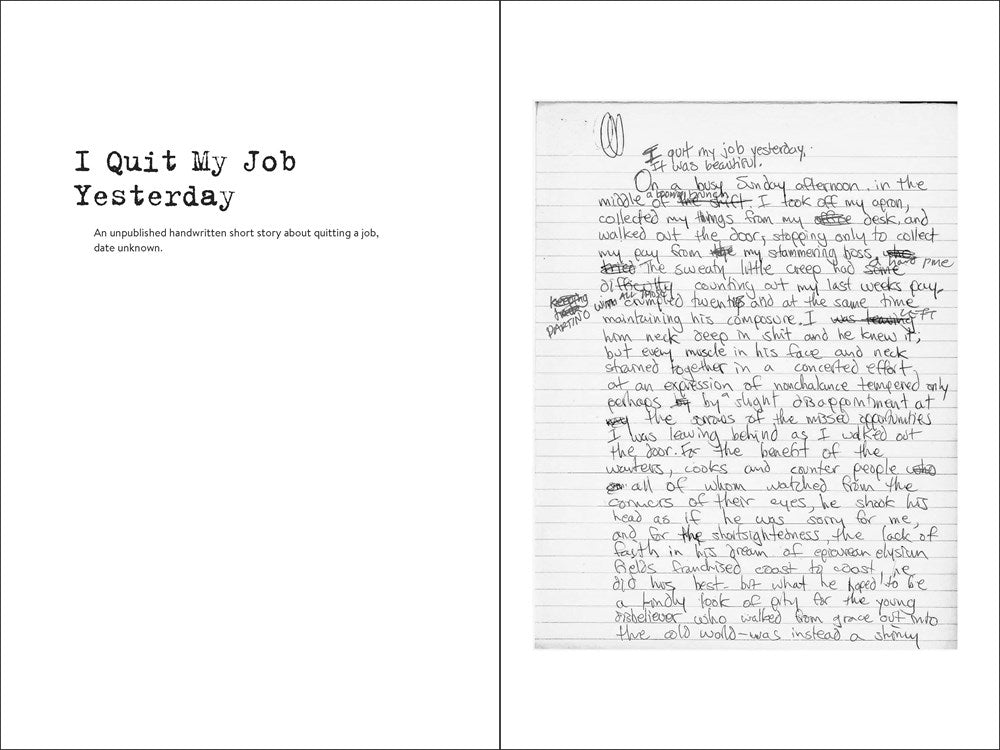 I Quit My Job
Yesterday
An unpublished handwritten short story about quitting a job,
date unknown.
I quit my job yesterday.
It was beautiful.
On a busy Sunday afternoon, in the
middle of a booming brunch I took off my apron,
collected my things from my desk, and
walked out the door, stopping only to collect
my pay from my stammering boss.
The sweaty little creep had a hard time
difficulty counting out my last weeks pay
with all those crumpled twentys and at the same time
maintaining his composure. I left
him neck deep in shit and he knew it,
but every muscle in his face and neck
strained together in a concerted effort
at an expression of nonchalance tempered only
perhaps by a slight disappointment at
the sorrows of the missed opportunities
I was leaving behind as I walked out
the door. For the benefit of the
waiters, cooks and counter people
all of whom watched from the
corners of their eyes, he shook his
head as if he was sorry for me,
and for the shortsightedness, the lack of
faith in his dream of epicurean elysian
fields franchised coast to coast, he
did his best- but what he hoped to be
a kindly look of pity for the young
disbeliever who walked from grace out into
the cold world-was instead a